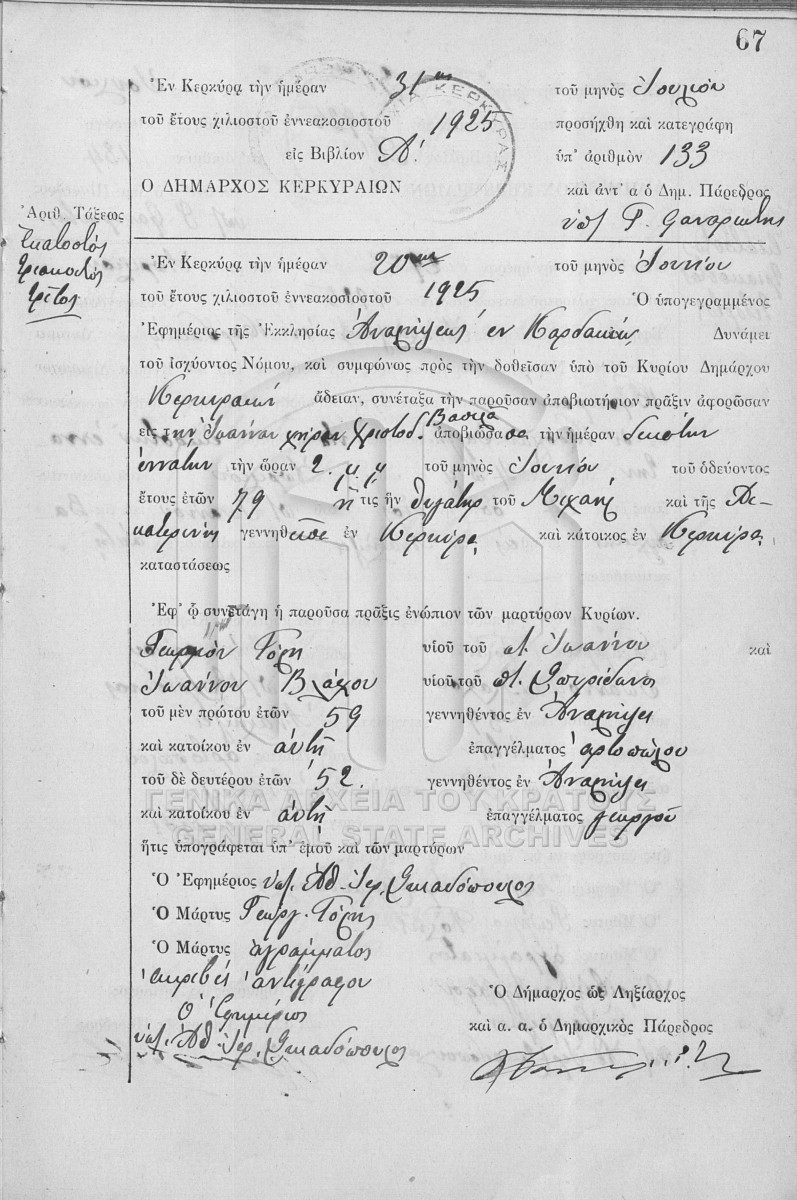 67
Ἐν Κερκύρᾳ τὴν ἡμέραν 31ην τοῦ μηνὸς Ἰουλίου
τοῦ ἔτους χιλιοστοῦ ἐννεακοσιοστοῦ 1925 προσήχθη καὶ κατεγράφη
εἰς Βιβλίον Α΄. ὑπ' ἀριθμὸν 133
Ο ΔΗΜΑΡΧΟΣ ΚΕΡΚΥΡΑΙΩΝ καὶ ἀντ' α ὁ Δημ. Πάρεδρος
ὑπ
Ἀριθ. Τάξεως
Ἑκατοστὸς
τριακοστὸς
τρίτος
Ἐν Κερκύρᾳ τὴν ἡμέραν 20ην τοῦ μηνὸς Ἰουνίου
τοῦ ἔτους χιλιοστοῦ ἐννεακοσιοστοῦ 1925 Ὁ ὑπογεγραμμένος
Ἐφημέριος τῆς Ἐκκλησίας Ἀναλήψεως ἐν Δυνάμει
τοῦ Ἰσχύοντος Νόμου, καὶ συμφώνως πρὸς τὴν δοθεῖσαν ὑπὸ τοῦ Κυρίου Δημάρχου
Κερκυραίων ἄδειαν, συνέταξα τὴν παροῦσαν ἀποβιωτήριον πρᾶξιν ἀφορῶσαν
εἰς τὴν Ἰωάνναν χήραν Χριστοδ. Βασιλᾶ ἀποβιώσασα τὴν ἡμέραν δεκάτην
ἐννάτην τὴν ὥραν 2. μ. μ τοῦ μηνὸς Ἰουνίου τοῦ ὁδεύοντος
ἔτους ἐτῶν 79 ἥτις ἦν θυγάτηρ τοῦ Μιχαὴλ καὶ τῆς Αἰ-
κατερίνης γεννηθεῖσα ἐν Κερκύρᾳ καὶ κάτοικος ἐν Κερκύρᾳ
καταστάσεως
Ἐφ' ᾧ συνετάγη ἡ παροῦσα πρᾶξις ἐνώπιον τῶν μαρτύρων Κυρίων.
Γεωργίου Τόρη υἱοῦ τοῦ π. Ἰωάννου καὶ
Ἰωάννου Βλάχου υἱοῦ τοῦ π. Σπυρίδωνος
τοῦ μὲν πρώτου ἐτῶν 59 γεννηθέντος ἐν Ἀναλήψει
καὶ κατοίκου ἐν αὐτῇ ἐπαγγέλματος ἀρτοπώλου
τοῦ δὲ δευτέρου ἐτῶν 52. γεννηθέντος ἐν Ἀναλήψει
καὶ κατοίκου ἐν αὐτῇ ἐπαγγέλματος γεωργοῦ
ΓΕΝΙΚΑ ΑΡΧΕΙΑ ΤΟΥ ΚΡΑΤΟΥΣ
GENERAL STATE ARCHIVES
ἥτις ὑπογράφεται ὑπ' ἐμοῦ καὶ τῶν μαρτύρων
Ὁ Ἐφημέριος ὑπ. Ἀθ. Ἱερ. Σκιαδόπουλος
Ὁ Μάρτυς Γεωργ. Τόρης
Ὁ Μάρτυς ἀγράμματος
ἀκριβὲς ἀντίγραφον
Ὁ Ἐφημέριος
ὑπ. Ἀθ. Ἱερ. Σκιαδόπουλος
Ὁ Δήμαρχος ὡς Ληξίαρχος
καὶ α. α. ὁ Δημαρχικὸς Πάρεδρος